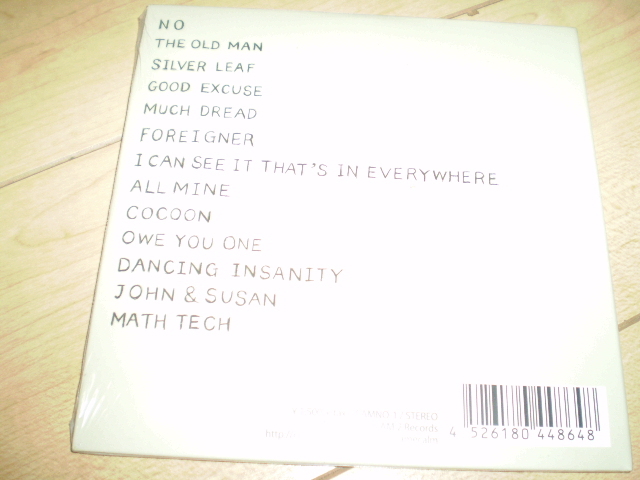 NO
THE OLD MAN
SILVER LEAF
GOOD EXCUSE
MUCH DREAD
FOREIGNER
I CAN SEE IT THAT'S IN EVERYWHERE
ALL MINE
COCOON
OWE YOU ONE
DANCING INSANITY
JOHN & SUSAN
MATH TECH
STEREO
Records
http
4 526180 448648